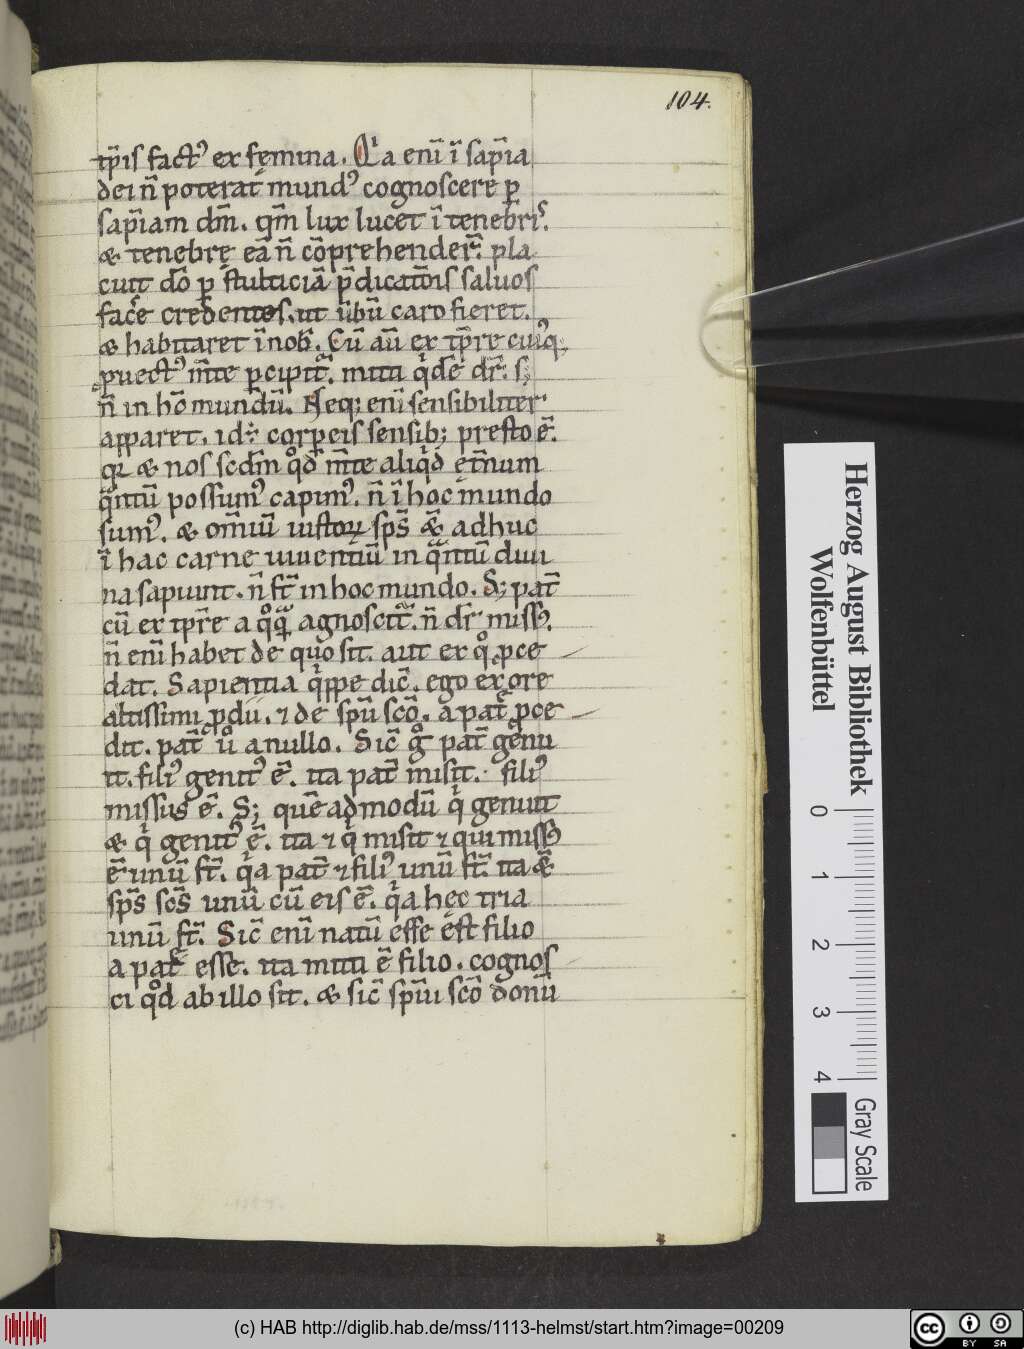 104.
tp̄is fact᾽ ex fęmina. Qⁱa enī ī sap̄ia
dei n̄ poterat mund᾽ cognoscere ꝑ
sap̄iam dm̄. qm̄ lux lucet ī tenebris.
& tenebrę eā n̄ cōprehender̄. pla
cuit dō ꝑ stulticiā p̄dicatōis saluos
facere credentes. ut úbū caro fieret.
& habitaret ī nob̄. Cū aū ex tp̄re cuiq;
ꝓuect᾽ m̄te ꝑcipit̃. mitti qⁱdē dr̄. s;
n̄ in hō mundū. Neq; enī sensibiliter
apparet. id ÷ corꝑeis sensib; presto ē.
qꝛ & nos scdm̄ qͦd m̄te aliqⁱd ęt̄num
qᵃntū possum᾽ capim᾽. n̄ ī hoc mundo
sum᾽. & om̄iū iustoꝝ sp̄s &ᵃ adhuc
ī hac carne uiuentiū in qᵃntū diui
na sapiunt. n̄ st̄ in hoc mundo. S; pat̄
cū ex tp̄re a qͦqᵃ agnoscit̃. n̄ dr̄ miss᾽.
n̄ enī habet de quo sit. aut ex qͦ ꝓce
dat. Sapientia qⁱppe dic̄. ego ex ore
altissimi ꝓdii. ⁊ de sp̄u scō. a pat̄ ꝓce
dit. pat̄ uͦ a nullo. Sic̄ gͦ pat̄ genu
it. fili᾽ genit᾽ ē. ita pat̄ misit. fili᾽
missus ē. S; quē admodū qⁱ genuit
& qⁱ genit᾽ ē. ita ⁊ qⁱ misit ⁊ qui miss᾽
ē unū st̄. qⁱa pat̄ ⁊ fili᾽ unū st̄. ita &ᵃ
sp̄s scs̄ unū cū eis ē. qⁱa hęc tria
unū st̄. Sic̄ enī natū esse est filio
a pat̄ esse. ita mitti ē filio. cognos
ci qͦd ab illo sit. & sic̄ sp̄ui scō donū
Herzog August Bibliothek
Wolfenbüttel
0 1 2 3 4
Gray Scale
(c) HAB http://diglib.hab.de/mss/1113-helmst/start.htm?image=00209
cc BY SA